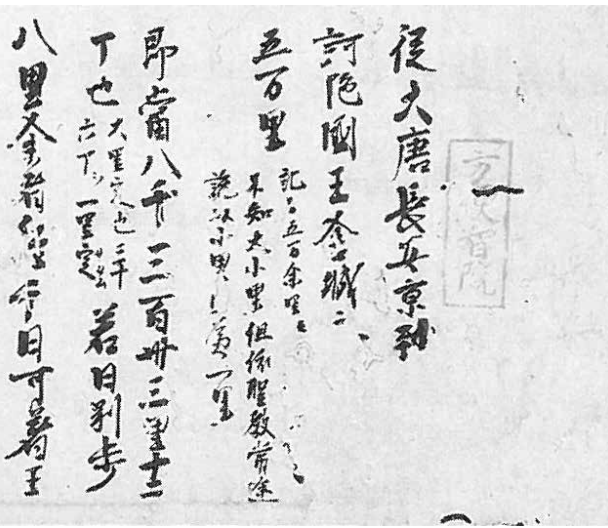 方便智院
一
從大唐長安京到
訶陁國王舎城ニ
五万里
記ニ五万余里
不知大小里但依聖教常途
説以小里 為一里
即當八千三百卅三里十二
丁也
大里定也三十
六丁 一里定
若日別歩
八里 日可着王